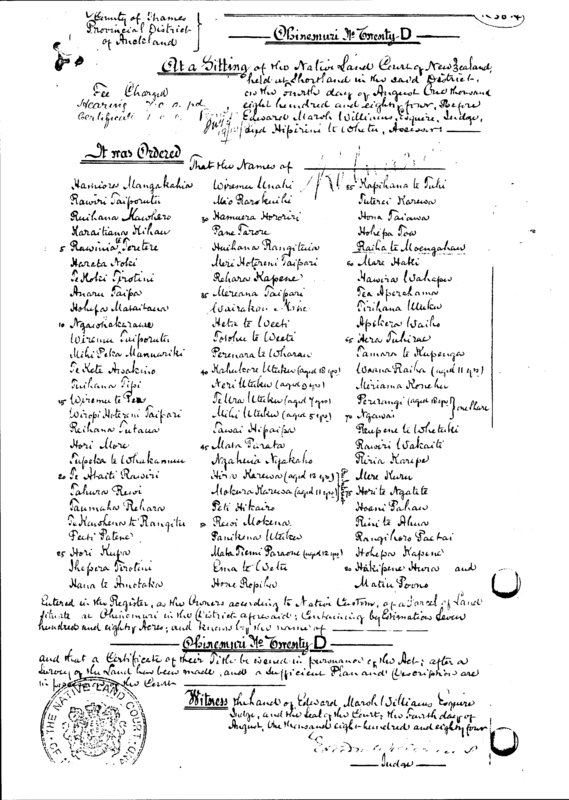 County of Thames
Provincial District
of Auckland
Ohinemuri No Twenty-D
At a Sitting of the Native Land Court of New Zealand,
held at Shortland in the said District,
on the fourth day of August One thousand
eight hundred and eighty four, Before
Edward Marsh Williams Esquire, Judge,
and Hipirini te Whetu, Assessor
Fee Charged
Hearing
Certificate
It was Ordered
That the Names of
Hamiora Mangakahia
Rawiri Taiporutu
Ruihana Kawhero
Karaitiana Kihau
5 Rawinia te Teutere
Harata Noki
Te Hoki Tirotini
Anaru Taipa
Hohepa Mataitaua
10 Ngawhakarawe
Wiremu Taiporutu
Mihi Peka Manuariki
Te Kete Awakino
Ruihana Tipi
15 Wiremu te Pea
Wiropi Hotereni Taipari
Reihana Tutaua
Hori More
Tupeka te Whakamau
20 Te Ataiti Rawiri
Tahura Rewi
Taumaha Rehara
Te Kuwhena te Rangitu
Peeti Patene
25 Hori Kupa
Ihepera Tirotini
Hana te Amotaka
Wiremu Unahi
Mio Rarokuihi
30 Hamuera Hororiri
Pane Tarore
Huihana Rangituia
Meri Hotereni Taipari
Rehara Kapene
35 Mereana Taipari
Wairakau
Heta te Weeti
Totohu te Weeti
Perenara te Wharau
40 Kahukore Utuku (aged 13 yrs)
Neri Utuku (aged 9 yrs)
Te Ura Utuku (aged 7 yrs)
Mihi Utuku (aged 5 yrs)
Tawai Hipaipa
45 Mata Purata
Ngahuia Ngakaho
Hira Karewa (aged 13 yrs)
Mokura Karewa (aged 11 yrs)
Peti Hikairo
50 Rewi Mokena
Panikena Utuku
Mata Riemi Paraone (aged 12 yrs)
Ema te Weta
Hone Ropiha
55 Kapihana te Tuhi
Tuterei Karewa
Hona Taiawa
Hohepa Toa
Raiha te Moengahau
60 Mere Haki
Hawira Wahapu
Pea Aperahama
Pirihana Utuku
Apikera Waiho
65 Hera Tuhirae
Tamara te Kupenga
Woana Raiha (aged 11 yrs)
Miriama Konehu
Pererangi
one share
70 Ngawai
Reupene te Whetuki
Rawiri Wakaiti
Riria Karepe
Mere Kuru
75 Horite Ngatete
Hoani Pahau
Rini te Ahua
Rangihoro Paetai
Hohepa Kapene
80 Hakipene Hura and
Matiu Poono
Entered in the Register, as the Owners according to Native Custom, of a Parcel of Land
situate at Ohinemuri in the District aforesaid; Containing by Estimation Seven
hundred and eighty Acres; and known by the name of
Ohinemuri No Twenty-D
and that a Certificate of their Title be issued in pursuance of the Act; after a
Survey of the Land has been made, and a sufficient Plan and Description are
in possession of the Court
Witness the hand of Edward Marsh Williams Esquire
Judge, and the Seal of the Court, the fourth day of
August, One thousand eight hundred and eighty four
Judge
THE NATIVE LAND COURT